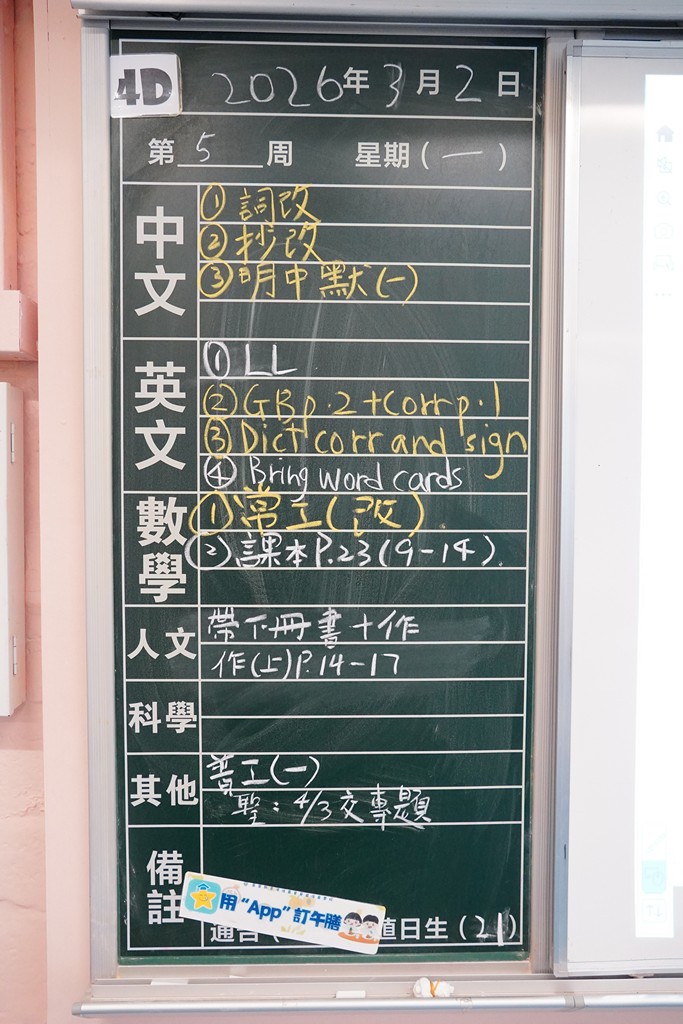 4D 2026年3月2日
第5周 星期(一)
中文
①詞改
②抄改
③明中默(一)
英文
① LL
② GB p.2 + corr p.1
③ Dict corr and sign
④ Bring word cards
數學
①常工(改)
②課本P.23(9-14).
人文
帶下冊書+作
作(上)P.14-17
科學
其他
普工(一)
聖:4/3交專題
備註
用“App”訂午膳
日生(21)